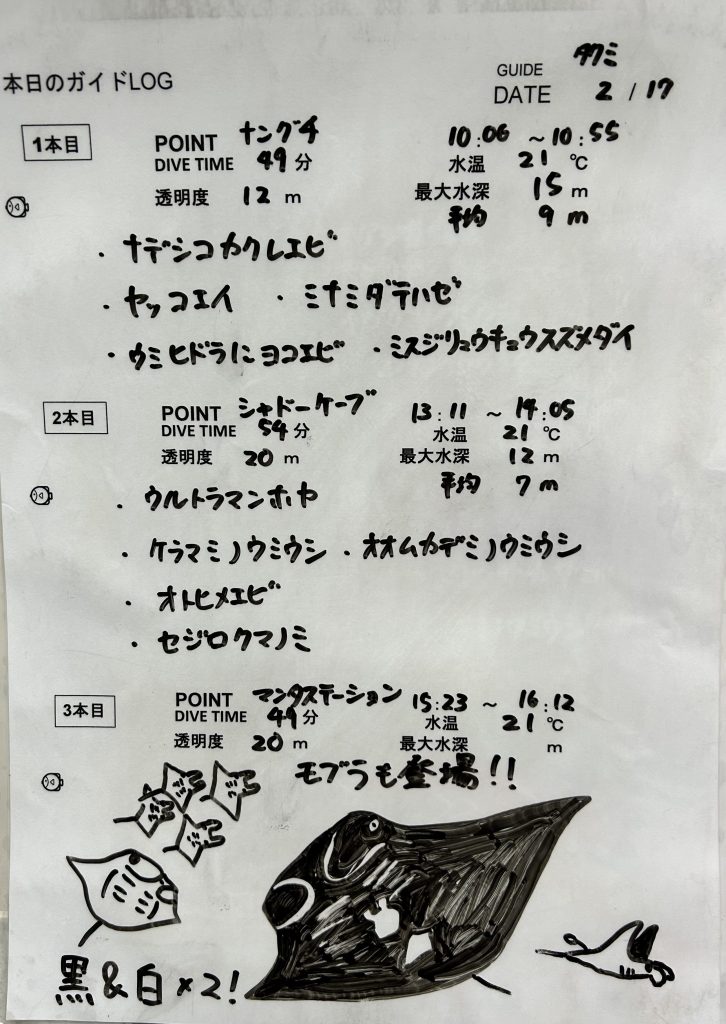 本日のガイドLOG
GUIDE タクミ
DATE 2 / 17
1本目
POINT ナングチ 10:06 ~ 10:55
DIVE TIME 49 分 水温 21 ℃
透明度 12 m 最大水深 15 m
平均 9 m
・ナデシコカクレエビ
・ヤッコエイ ・ミナミダテハゼ
・ウミヒドラにヨコエビ ・ミスジリュウキュウスズメダイ
2本目
POINT シャドーケーブ 13:11 ~ 14:05
DIVE TIME 54 分 水温 21 ℃
透明度 20 m 最大水深 12 m
平均 7 m
・ウルトラマンホヤ
・ケラマミノウミウシ ・オオムカデミノウミウシ
・オトヒメエビ
・セジロクマノミ
3本目
POINT マンタステーション 15:23 ~ 16:12
DIVE TIME 49 分 水温 21 ℃
透明度 20 m 最大水深 m
モブラも登場!!
黒&白×2!